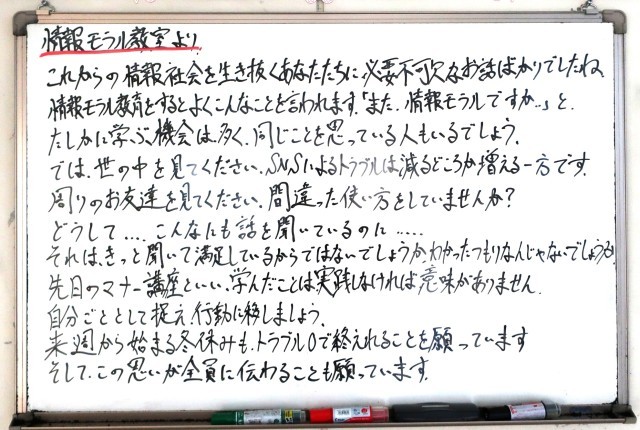 情報モラル教室より
これからの情報社会を生き抜くあなたたちに必要不可欠なお話ばかりでしたね。
情報モラル教育をするとよくこんなことを言われます。「また、情報モラルですか…」と。
たしかに学ぶ機会は多く、同じことを思っている人もいるでしょう。
では、世の中を見てください。SNSによるトラブルは減るどころか増える一方です。
周りのお友達を見てください。間違った使い方をしていませんか?
どうして.... こんなにも話を聞いているのに.....
それは、きっと聞いて満足しているからではないでしょうか。わかったつもりなんじゃないでしょうか。
先日のマナー講座といい、学んだことは実践しなければ意味がありません。
自分ごととして捉え、行動に移しましょう。
来週から始まる冬休みも、トラブル0で終えれることを願っています
そして、この思いが全員に伝わることも願っています。